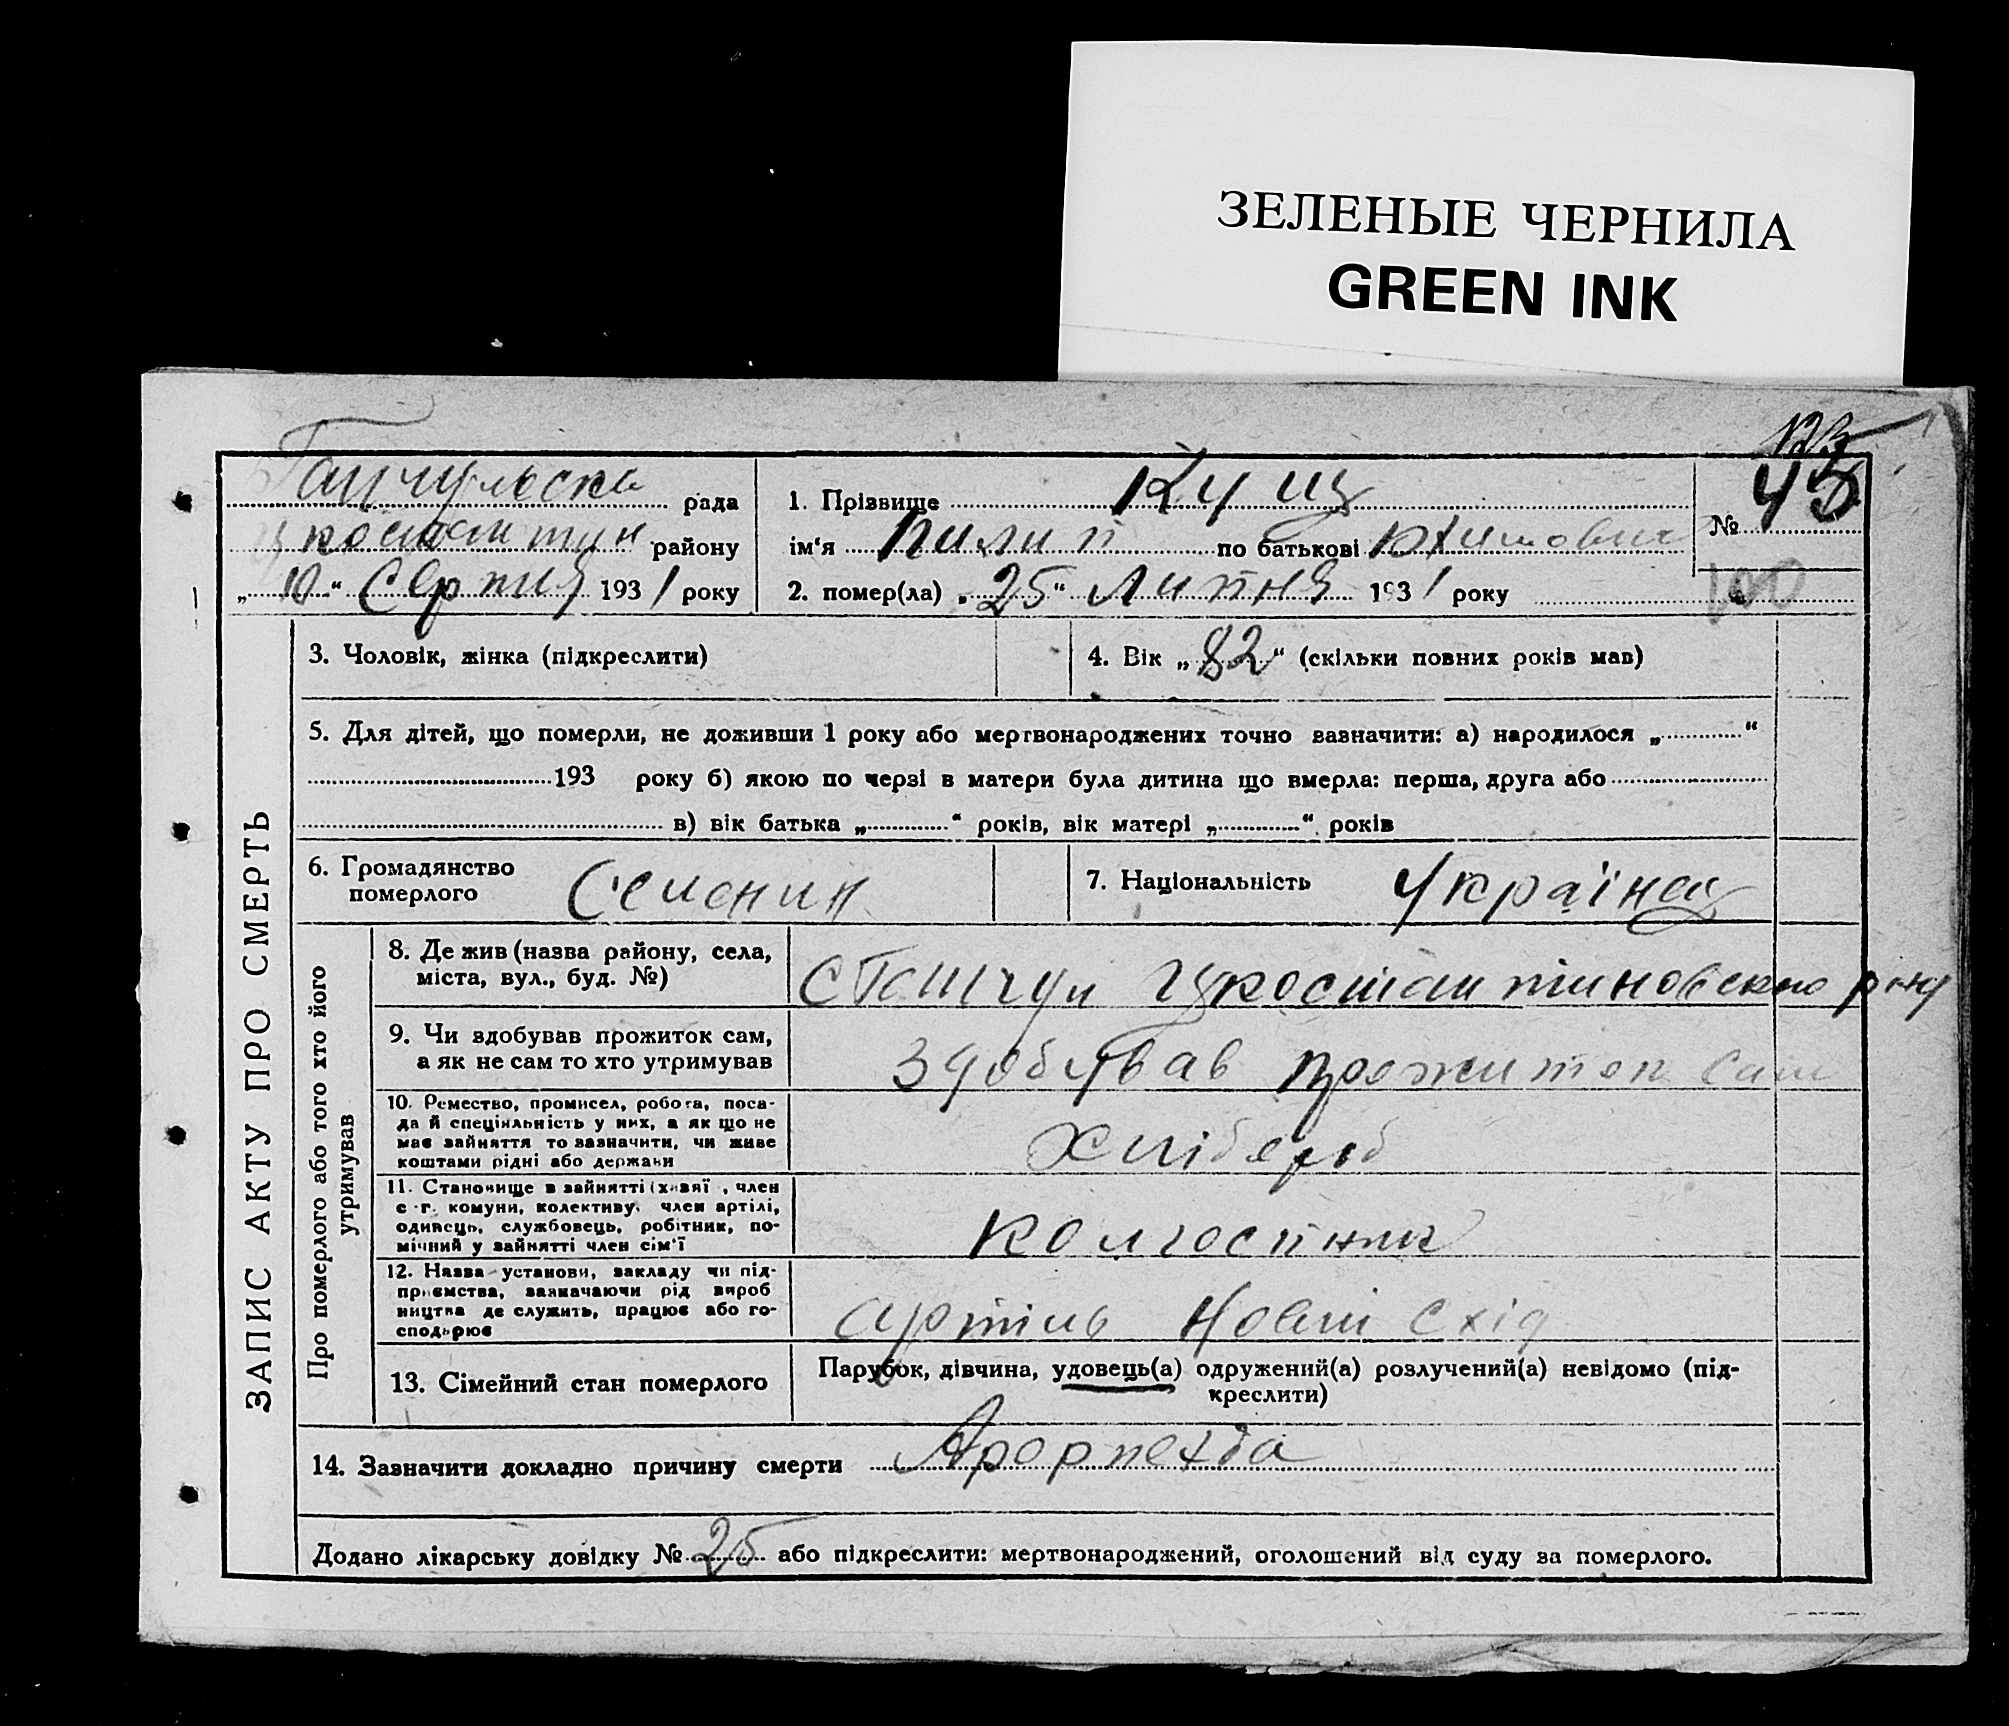 ЗЕЛЕНЫЕ ЧЕРНИЛА
GREEN INK
123
Гайчульска рада
района
„10“ Серпня 1931 року
1. Прізвище Кущ
ім‘я Пилип по батькові
2. помер(ла) „25“ Липня 1931 року
№ 45
100
3. Чоловік, жінка (підкреслити)
4. Вік „82“ (скільки повних років мав)
5. Для дітей, що померли, не доживши 1 року або мертвонароджених точно зазначити: а) народилося „ “
193 року б) якою по черзі в матери була дитина що вмерла: перша, друга або
в) вік батька „ “ років, вік матері „ “ років
6. Громадянство
померлого Селенин
7. Національність Українец
ЗАПИС АКТУ ПРО СМЕРТЬ
Про померлого або того хто його
утримував
8. Де жив (назва району, села,
міста, вул., буд. №)
с Гайчул
9. Чи здобував прожиток сам,
а як не сам то хто утримував
Здобував прожиток сам
10. Ремество, промисел, робота, поса-
да й спеціяльність у них, а як що не
має зайняття то зазначити, чи живе
коштами рідні або держави
Хлібороб
11. Становище в зайнятті (хазяї , член
с-г. комуни, колективу, член артілі,
одинець, службовець, робітник, по-
мічний у зайнятті член сім‘ї
колгоспник
12. Назва установи, закладу чи під-
приємства, зазначаючи рід вироб
ництва де служить, працює або го-
сподарює
артіль Новий Схід
13. Сімейний стан померлого
Парубок, дівчина, удовець(а) одружений(а) розлучений(а) невідомо (під-
креслити)
14. Зазначити докладно причину смерти
Додано лікарську довідку № 25 або підкреслити: мертвонароджений, оголошений від суду за померлого.